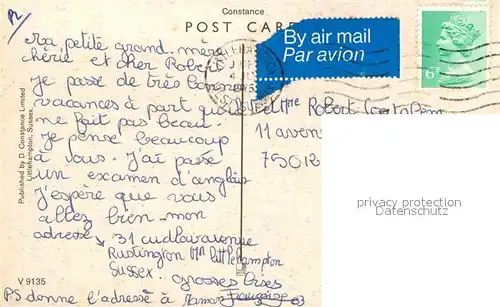 Constance
POST CARD
By air mail
Par avion
6P
Ma petite grand-mère
chérie et cher Robert
je passe de très bonnes
vacances à part qu'il
ne fait pas beau.
Je pense beaucoup
à vous. J'ai passé
un examen d'anglais
J'espère que vous
allez bien. mon
adresse → 31 cudlow avenue
Rustington Nr Littlehampton
Sussex.
grosses bises
PS donne l'adresse à Maman
Françoise
et Mme Robert
11 avenue
75012
Published by D. Constance Limited
Littlehampton, Sussex.
V 9135
privacy protection
Datenschutz